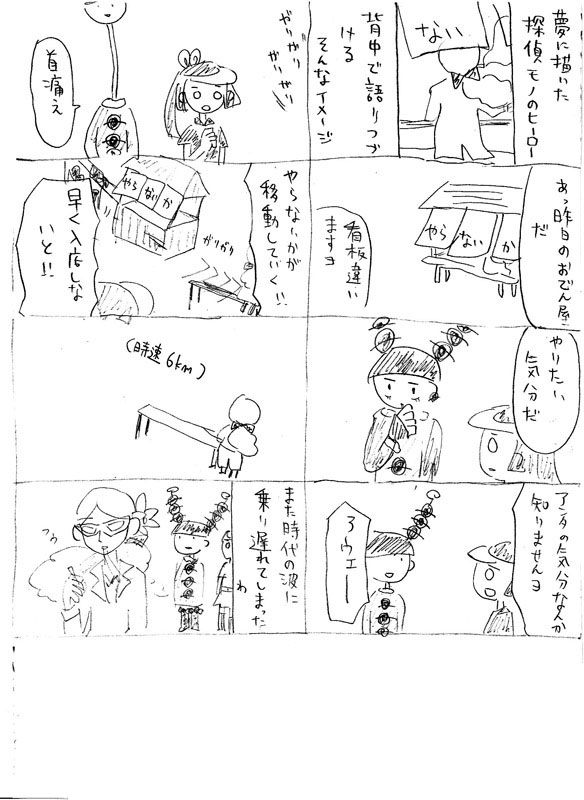 夢に描いた
探偵モノのヒーロー
ない
背中で語りつづ
ける
そんなイメージ
あっ昨日のおでん屋
だ
やら
ない
か
看板違い
ますヨ
やりたい
気分だ
アンタの気分なんか
知りませんヨ
アウェー
ガリガリ
ガリガリ
首痛え
やらないかが
移動していく!!
やら
ない
か
ガリガリ
早く入店しな
いと!!
(時速6km)
また時代の波に
乗り遅れてしまった
わ
フゥ